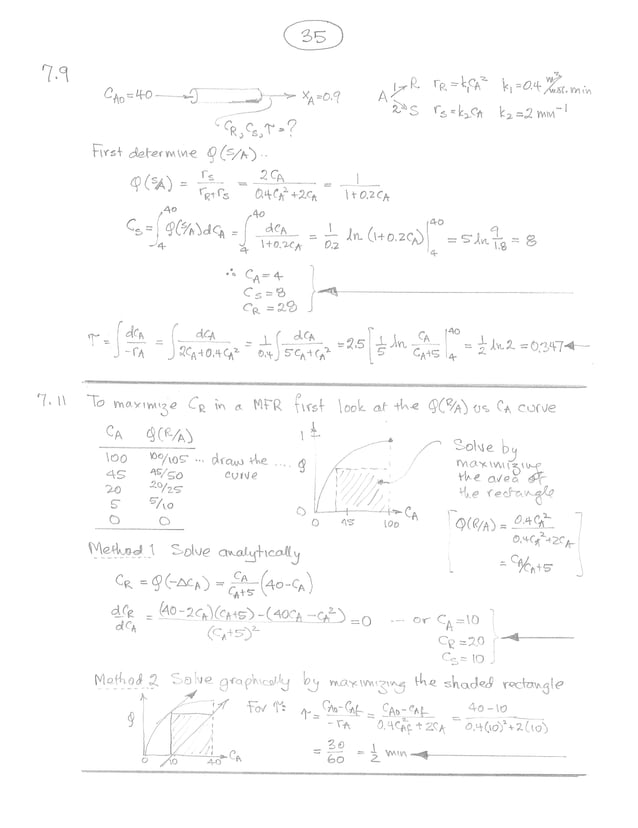 35
7.9
C_A0 = 40 → X_A = 0.9
C_R, C_S, τ = ?
A 1 R r_R = k₁C_A² k₁ = 0.4 m³/mol·min
2 S r_S = k₂C_A k₂ = 2 min⁻¹
First determine φ(S/A)..
φ(S/A) = r_S/(r_R + r_S) = 2C_A/(0.4C_A² + 2C_A) = 1/(1 + 0.2C_A)
C_S = ∫₄⁴⁰ φ(S/A) dC_A = ∫₄⁴⁰ dC_A/(1 + 0.2C_A) = 1/0.2 ln (1 + 0.2C_A) |₄⁴⁰ = 5 ln 9/1.8 = 8
∴ C_A = 4
C_S = 8
C_R = 28
τ = ∫ dC_A/-r_A = ∫ dC_A/(2C_A + 0.4C_A²) = 1/0.4 ∫ dC_A/(5C_A + C_A²) = 2.5 [1/5 ln C_A/(C_A+5)|₄⁴⁰ = 1/2 ln 2 = 0.347
7.11 To maximize C_R in a MFR first look at the φ(R/A) vs C_A curve
C_A φ(R/A)
100 100/105 ... draw the ....
45 45/50 curve
20 20/25
5 5/10
0 0
1
φ
0
C_A
0 100
Solve by
maximizing
the area of
the rectangle
[φ(R/A) = 0.4C_A²/(0.4C_A² + 2C_A)
= C_A/C_A+5]
Method 1 Solve analytically
C_R = φ(-ΔC_A) = C_A/(C_A+5) (40 - C_A)
dC_R/dC_A = ((40 - 2C_A)(C_A + 5) - (40C_A - C_A²))/(C_A + 5)² = 0 ... or C_A = 10
C_R = 20
C_S = 10
Method 2 Solve graphically by maximizing the shaded rectangle
φ
0 10 40 C_A
For τ: τ = (C_A0 - C_Af)/-r_A = (C_A0 - C_Af)/(0.4C_Af² + 2C_A) = (40 - 10)/(0.4(10)² + 2(10))
= 30/60 = 1/2 min